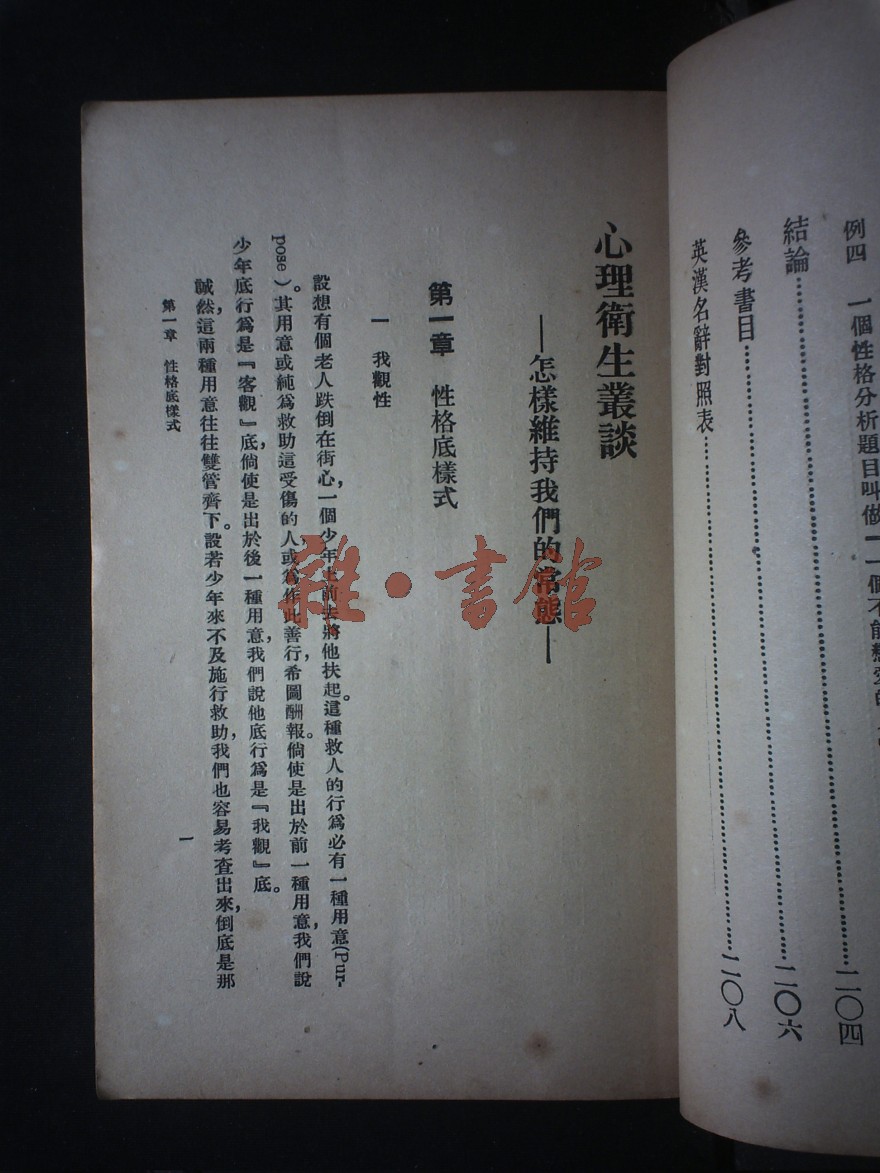 例四　一個性格分析題目叫做「一個不能戀愛的
二〇四
結論……二〇六
參考書目
英漢名辭對照表……二〇八
心理衛生叢談
—怎樣維持我們的常態—
第一章　性格底樣式
一　我觀性
設想有個老人跌倒在街心，一個少年上前去將他扶起。這種救人的行爲必有一種用意(Pur-
pose)。其用意或純爲救助這受傷的人，或爲作此善行，希圖酬報。倘使是出於前一種用意，我們說
少年底行爲是『客觀』底，倘使是出於後一種用意，我們說他底行爲是『我觀』底。
誠然，這兩種用意往往雙管齊下。設若少年來不及施行救助，我們也容易考查出來，倒底是那
第一章　性格底樣式
一
雜·書館